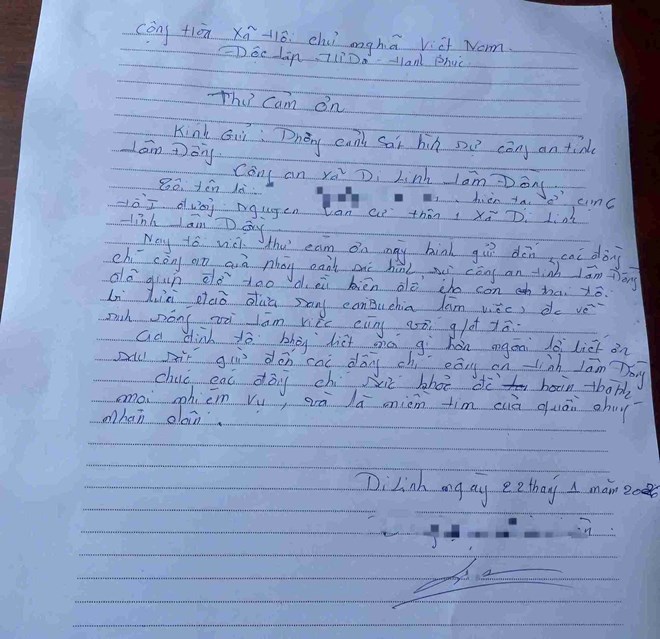 Cộng Hòa Xã Hội chủ nghĩa Việt Nam.
Độc lập Tự Do Hạnh Phúc.
Thư Cảm ơn
Kính Gửi: Phòng cảnh sát hình sự công an tỉnh
Lâm Đồng.
Công an xã Di Linh Lâm Đồng.
Tôi tên là. hiện tại ở
đường: Nguyễn Văn cừ thôn 1 xã Di Linh
tỉnh Lâm Đồng
Nay tôi viết thư cảm ơn này kính gửi đến các đồng
chí công an của phòng cảnh sát hình sự công an tỉnh Lâm Đồng
đã giúp đỡ tạo điều kiện để cho con trai tôi.
bị lừa đảo đưa sang canBuchia làm việc, đc về
sinh sống và làm việc cùng với g/đ tôi.
Gia đình tôi không biết nói gì hơn ngoài lời biết ơn
sâu sắc gửi đến các đồng chí công an tỉnh Lâm Đồng
chúc các đồng chí sức khoẻ để hoàn thành
mọi nhiệm vụ, và là niềm tin của quần chúng
nhân dân.
Di Linh ngày 22 tháng 1 năm 2026